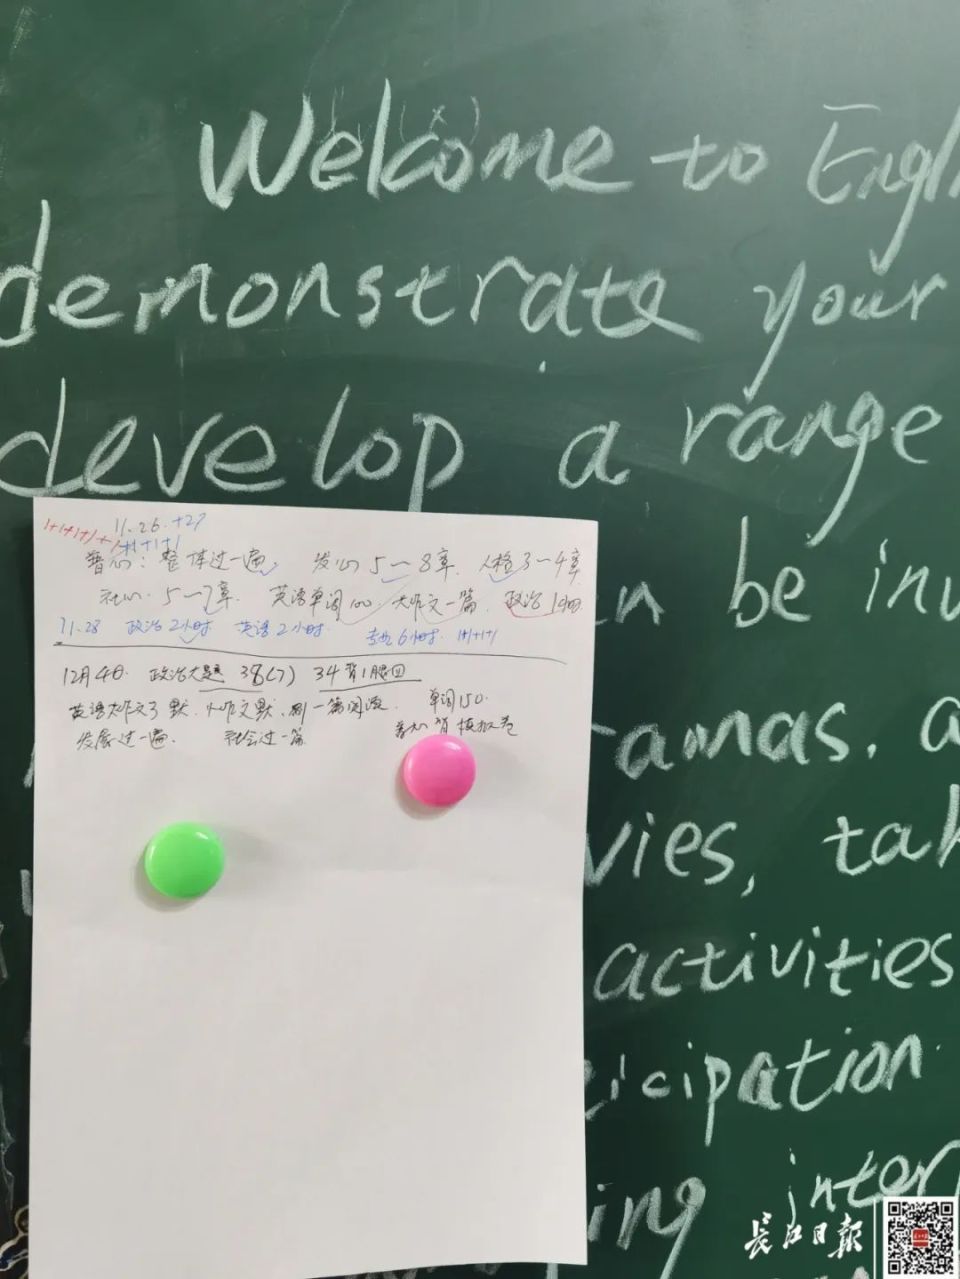 Welcome to Engl
demonstrate your
develop a range
n be inv
amas. a
vies, tak
activities
icipation
ing inter
1+1+1+1+1 11.26.+27
+1+1+1
普心: 整体过一遍 发心 5~8章. 人格 3~4章
社心. 5~7章. 英语单词100 大作文一篇. 政治
11.28 政治2小时 英语2小时. 专业6小时. 1+1+1
12月4日. 政治大题 38(7) 34背1题
英语大作文3默. 小作文默. 刷一篇阅读. 单词150.
发展过一遍. 社会过一篇 普心背模拟卷
长江日报